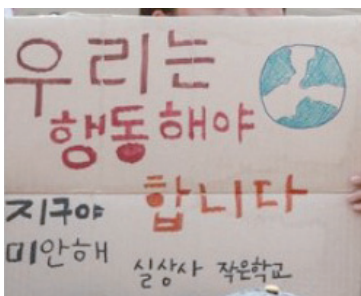 우리는
행동해야
합니다
지구야
미안해
실상사 작은학교